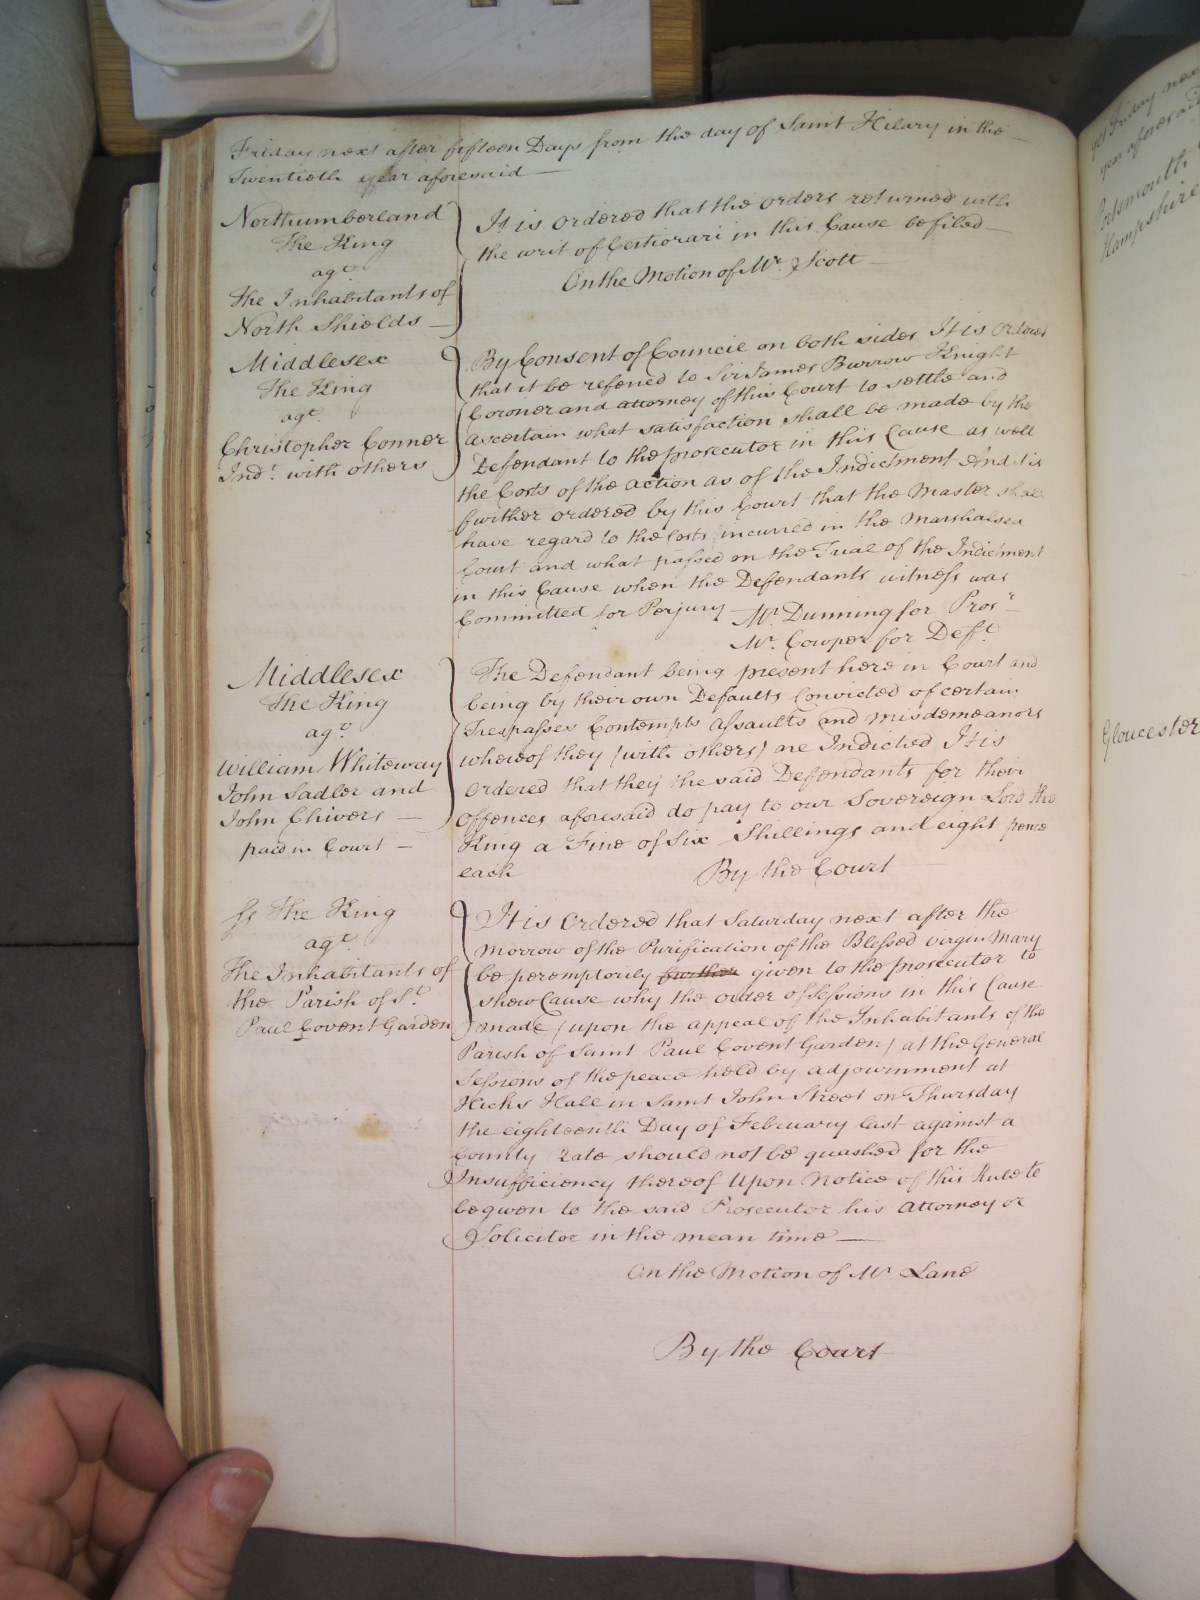 Friday next after fifteen Days from the day of Saint Hilary in the
Twentieth year aforesaid
Northumberland
The King
agt
The Inhabitants of
North Shields
It is ordered that the orders returned with
the writ of Certiorari in this Cause be filed
On the Motion of Mr. Scott
Middlesex
The King
agt
Christopher Conner
Indt. with others
By Consent of Council on both sides It is Ordered
that it be referred to Sir James Burrow Knight
Coroner and attorney of this Court to settle and
ascertain what satisfaction shall be made by the
Defendant to the prosecutor in this Cause as well
the Costs of the action as of the Indictment And it is
further ordered by this Court that the Master shall
have regard to the Costs incurred in the Marshalsea
Court and what passed on the Trial of the Indictment
in this Cause when the Defendants witness was
Committed for Perjury Mr. Dunning for Prosr
Mr. Cowper for Deft
Middlesex
The King
agt
William Whiteway
John Sadler and
John Chivers
paid in Court
The Defendant being present here in Court and
being by their own Defaults Convicted of certain
Trespasses Contempts assaults and misdemeanors
whereof they (with others) are Indicted It is
ordered that they the said Defendants for their
offences aforesaid do pay to our Sovereign Lord the
King a Fine of Six Shillings and eight pence
each By the Court
Ss The King
agt
The Inhabitants of
the Parish of St.
Paul Covent Garden
It is Ordered that Saturday next after the
Morrow of the Purification of the Blessed virgin Mary
be peremptorily further given to the prosecutor to
shew Cause why the order of sessions in this Cause
made (upon the appeal of the Inhabitants of the
Parish of Saint Paul Covent Garden) at the General
Sessions of the peace held by adjournment at
Hicks Hall in Saint John Street on Thursday
the eighteenth Day of February last against a
County Rate should not be quashed for the
Insufficiency thereof Upon Notice of this Rule to
be given to the said Prosecutor his attorney or
Solicitor in the mean time
On the Motion of Mr Lane
By the Court
Friday next
year aforesaid
Portsmouth
Hampshire
Gloucester